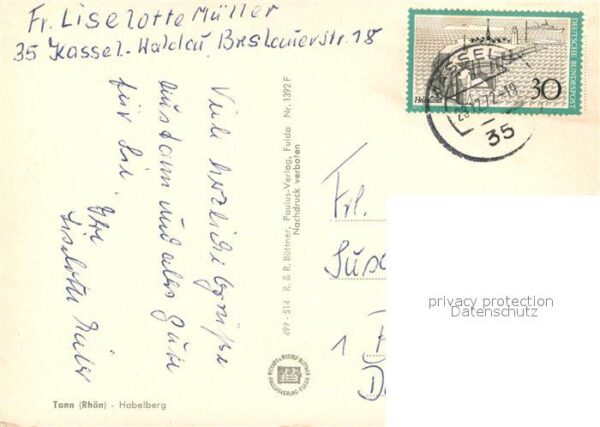 Fr. Liselotte Müller
35 Kassel-Waldau, Breslauerstr. 18
DEUTSCHE BUNDESPOST
30
KASSEL
35
Viele herzliche Grüße
aus Tann und alles Gute
für Sie.
Ihre
Liselotte Müller
499 - 514 R. & R. Büttner, Paulus-Verlag, Fulda Nr. 1392 F
Nachdruck verboten
Frl.
1
privacy protection
Datenschutz
Tann (Rhön) - Habelberg